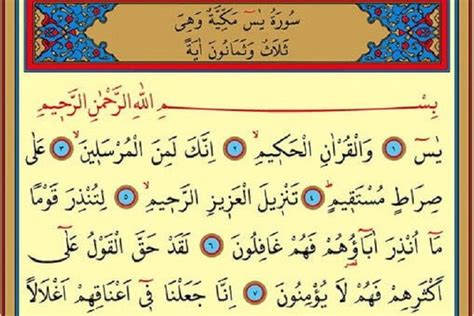 سُورَةُ يٰسٓ مَكِّيَّةٌ وَهِىَ
ثَلَاثٌ وَثَمَانُونَ اٰيَةً
بِسْمِ اللّٰهِ الرَّحْمٰنِ الرَّحٖيمِ
يٰسٓ ۚ ﴿١﴾ وَالْقُرْاٰنِ الْحَكٖيمِ ۙ ﴿٢﴾ اِنَّكَ لَمِنَ الْمُرْسَلٖينَ ۙ ﴿٣﴾ عَلٰى
صِرَاطٍ مُسْتَقٖيمٍ ۜ ﴿٤﴾ تَنْزٖيلَ الْعَزٖيزِ الرَّحٖيمِ ۙ ﴿٥﴾ لِتُنْذِرَ قَوْمًا
مَٓا اُنْذِرَ اٰبَٓاؤُ۬هُمْ فَهُمْ غَافِلُونَ ﴿٦﴾ لَقَدْ حَقَّ الْقَوْلُ عَلٰٓى
اَكْثَرِهِمْ فَهُمْ لَا يُؤْمِنُونَ ﴿٧﴾ اِنَّا جَعَلْنَا فٖٓى اَعْنَاقِهِمْ اَغْلَالًا